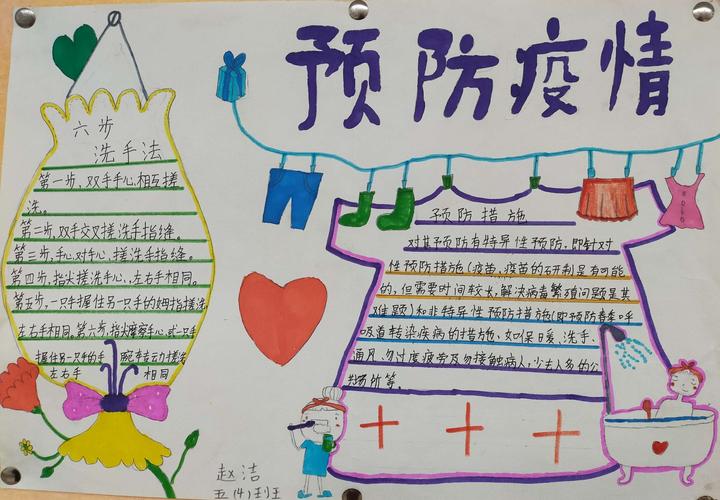 预防疫情
六步
洗手法
第一步，双手手心相互搓
洗。
第二步，双手交叉搓洗手指缝。
第三步，手心对手心，搓洗手指缝。
第四步，指尖搓洗手心，左右手相同。
第五步，一只手握住另一只手的拇指搓洗
左右手相同。第六步，指尖摩擦手心或一只手
握住另一只的手腕转动搓洗
左右手相同
预防措施
对其预防有特异性预防，即针对
性预防措施（疫苗，疫苗的研制是有可能
的，但需要时间较长，解决病毒繁殖问题是其
难题）和非特异性预防措施（即预防春季呼
吸道转染疾病的措施，如保日暖、洗手、
通风、勿过度疲劳及勿接触病人，少去人多的公
共场所等。
赵洁
五（4）班